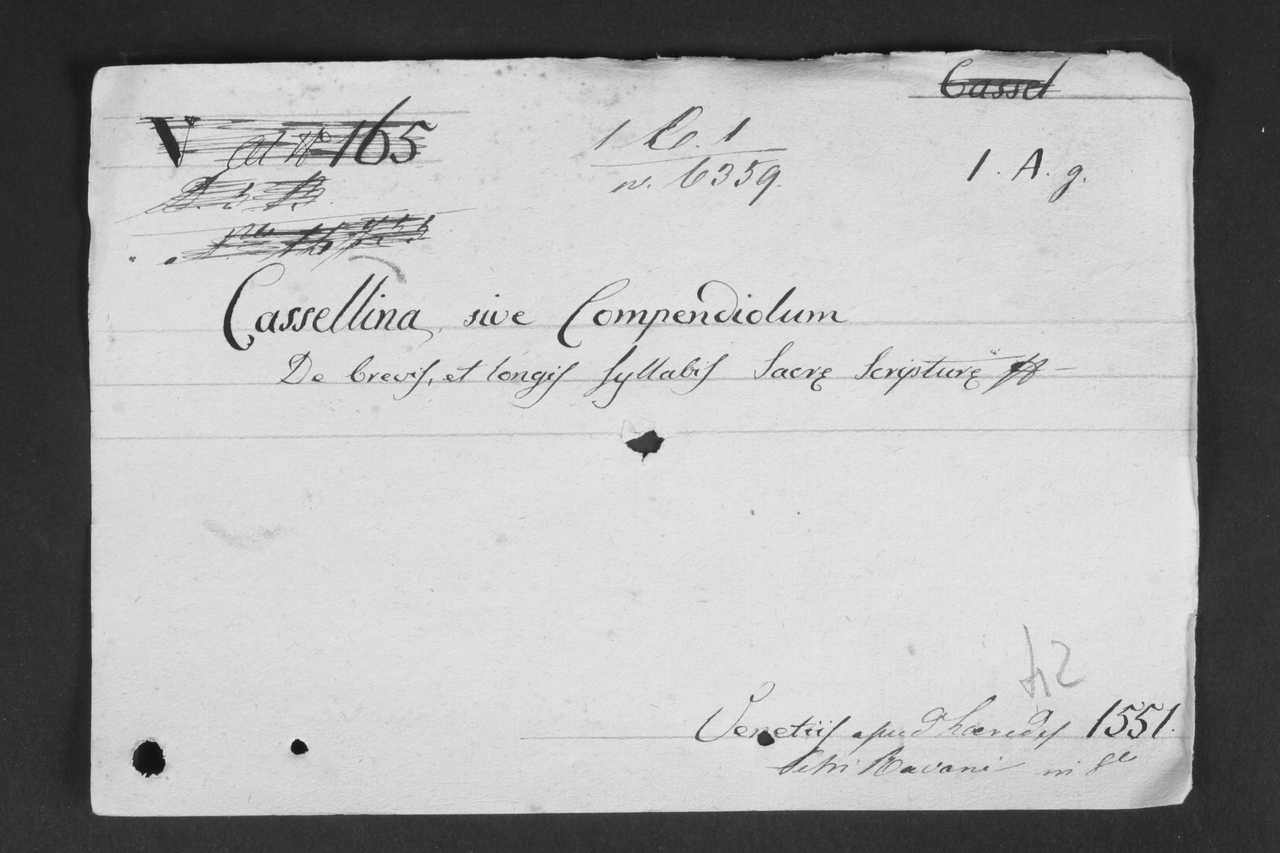 Cassel
V 165
1 C. 1
n. 6359.
1. A. g.
Cassellina, sive Compendiolum
De brevis, et longis syllabis Sacrę Scripturę
Venetiis apud hæredes 1551.
Petri Ravani in 8º